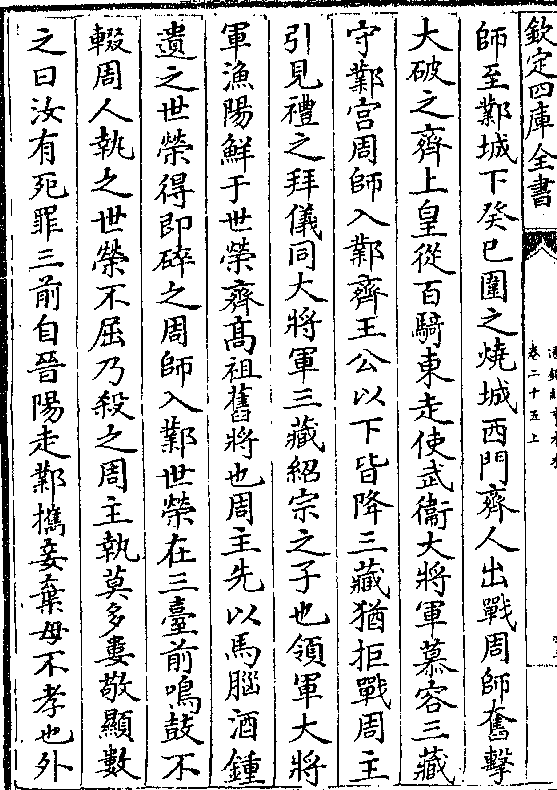 欽定四庫全書
卷二十五上
師至鄴城下癸巳圍之燒城西門齊人出戰周師奮擊
大破之齊上皇從百騎東走使武衞大將軍慕容三藏
守鄴宫周師入鄴齊王公以下皆降三藏猶拒戰周主
引見禮之拜儀同大將軍三藏紹宗之子也領軍大將
軍漁陽鮮于世榮齊髙祖舊將也周主先以馬腦酒鍾
遺之世榮得即碎之周師入鄴世榮在三臺前鳴鼓不
輟周人執之世榮不屈乃殺之周主執莫多婁敬顯數
之曰汝有死罪三前自晉陽走鄴攜妾棄母不孝也外